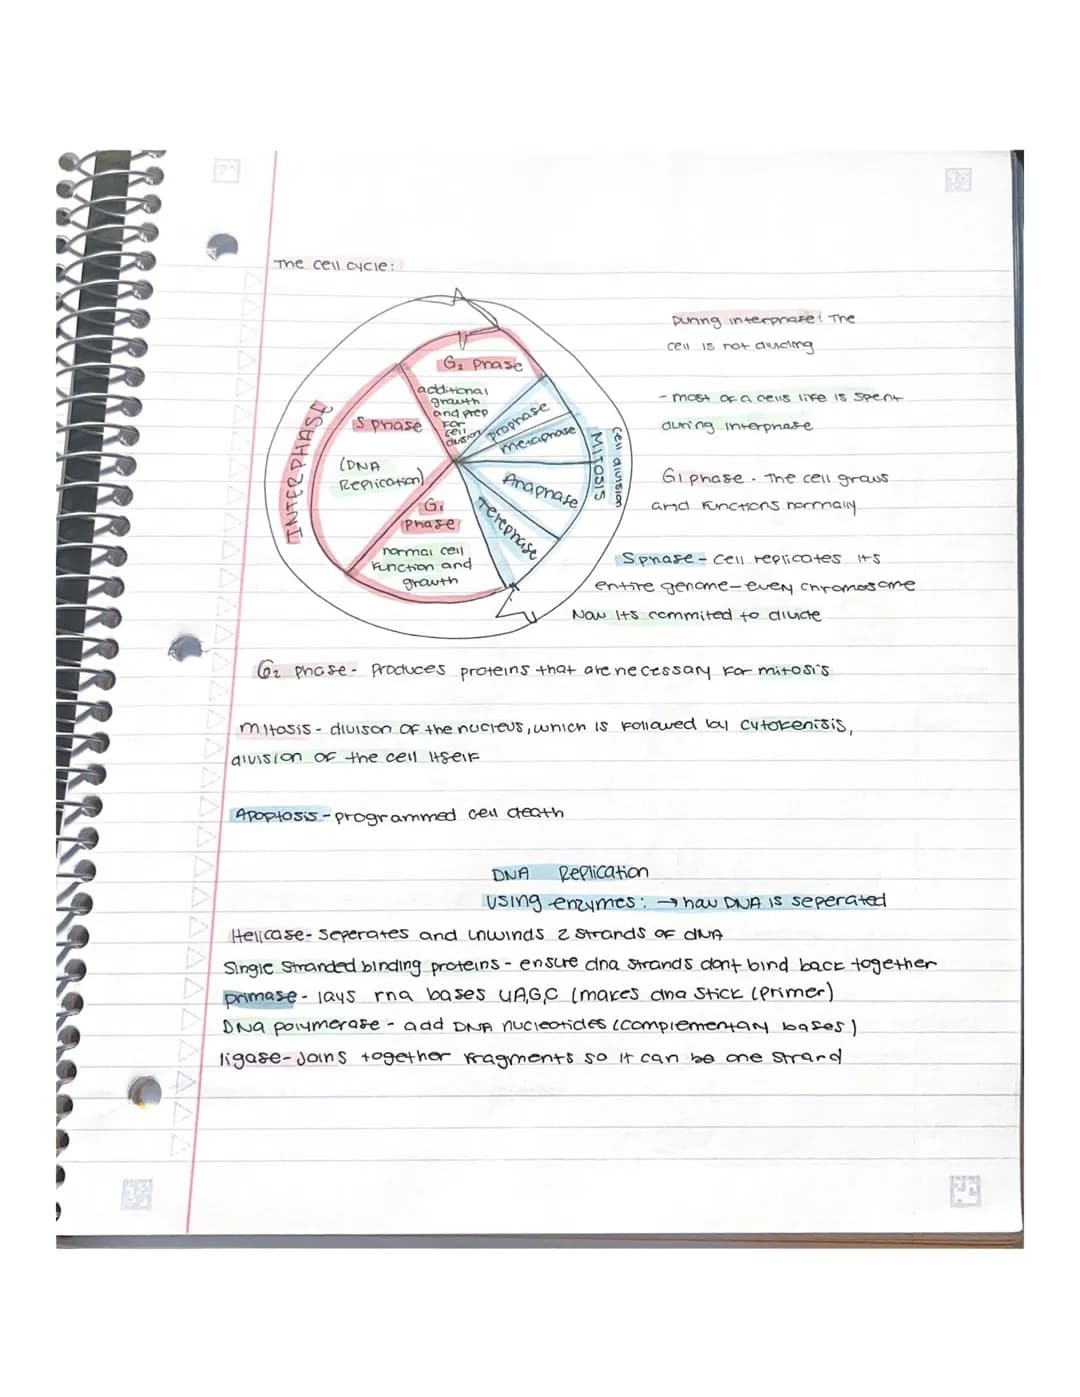 The cell cycle:
G2 Phase
additional
growth
and prep
For
cell
division
S phase
(DNA
Replication)
G1
Phase
normal cell
Function and
growth
INTERPHASE
prophase
metaphase
Anaphase
Telephase
MITOSIS
cell division
During interphase: The
cell is not dividing
- most of a cells life is spent
during interphase
G1 phase - The cell grows
and Functions normally
S phase - Cell replicates its
entire genome - every chromosome
Now its commited to divide
G2 phase - Produces proteins that are necessary for mitosis
mitosis - divison of the nucleus, which is followed by cytokenisis,
division of the cell itself
Apoptosis - programmed cell death
DNA Replication
Using enzymes: → how DNA is seperated
Helicase - Seperates and unwinds 2 strands of dNA
Single Stranded binding proteins - ensure dna strands dont bind back together
primase - lays rna bases UAGC (makes dna stick (Primer)
DNA polymerase - add DNA nucleotides (complementary bases)
ligase - Joins together fragments so it can be one strand